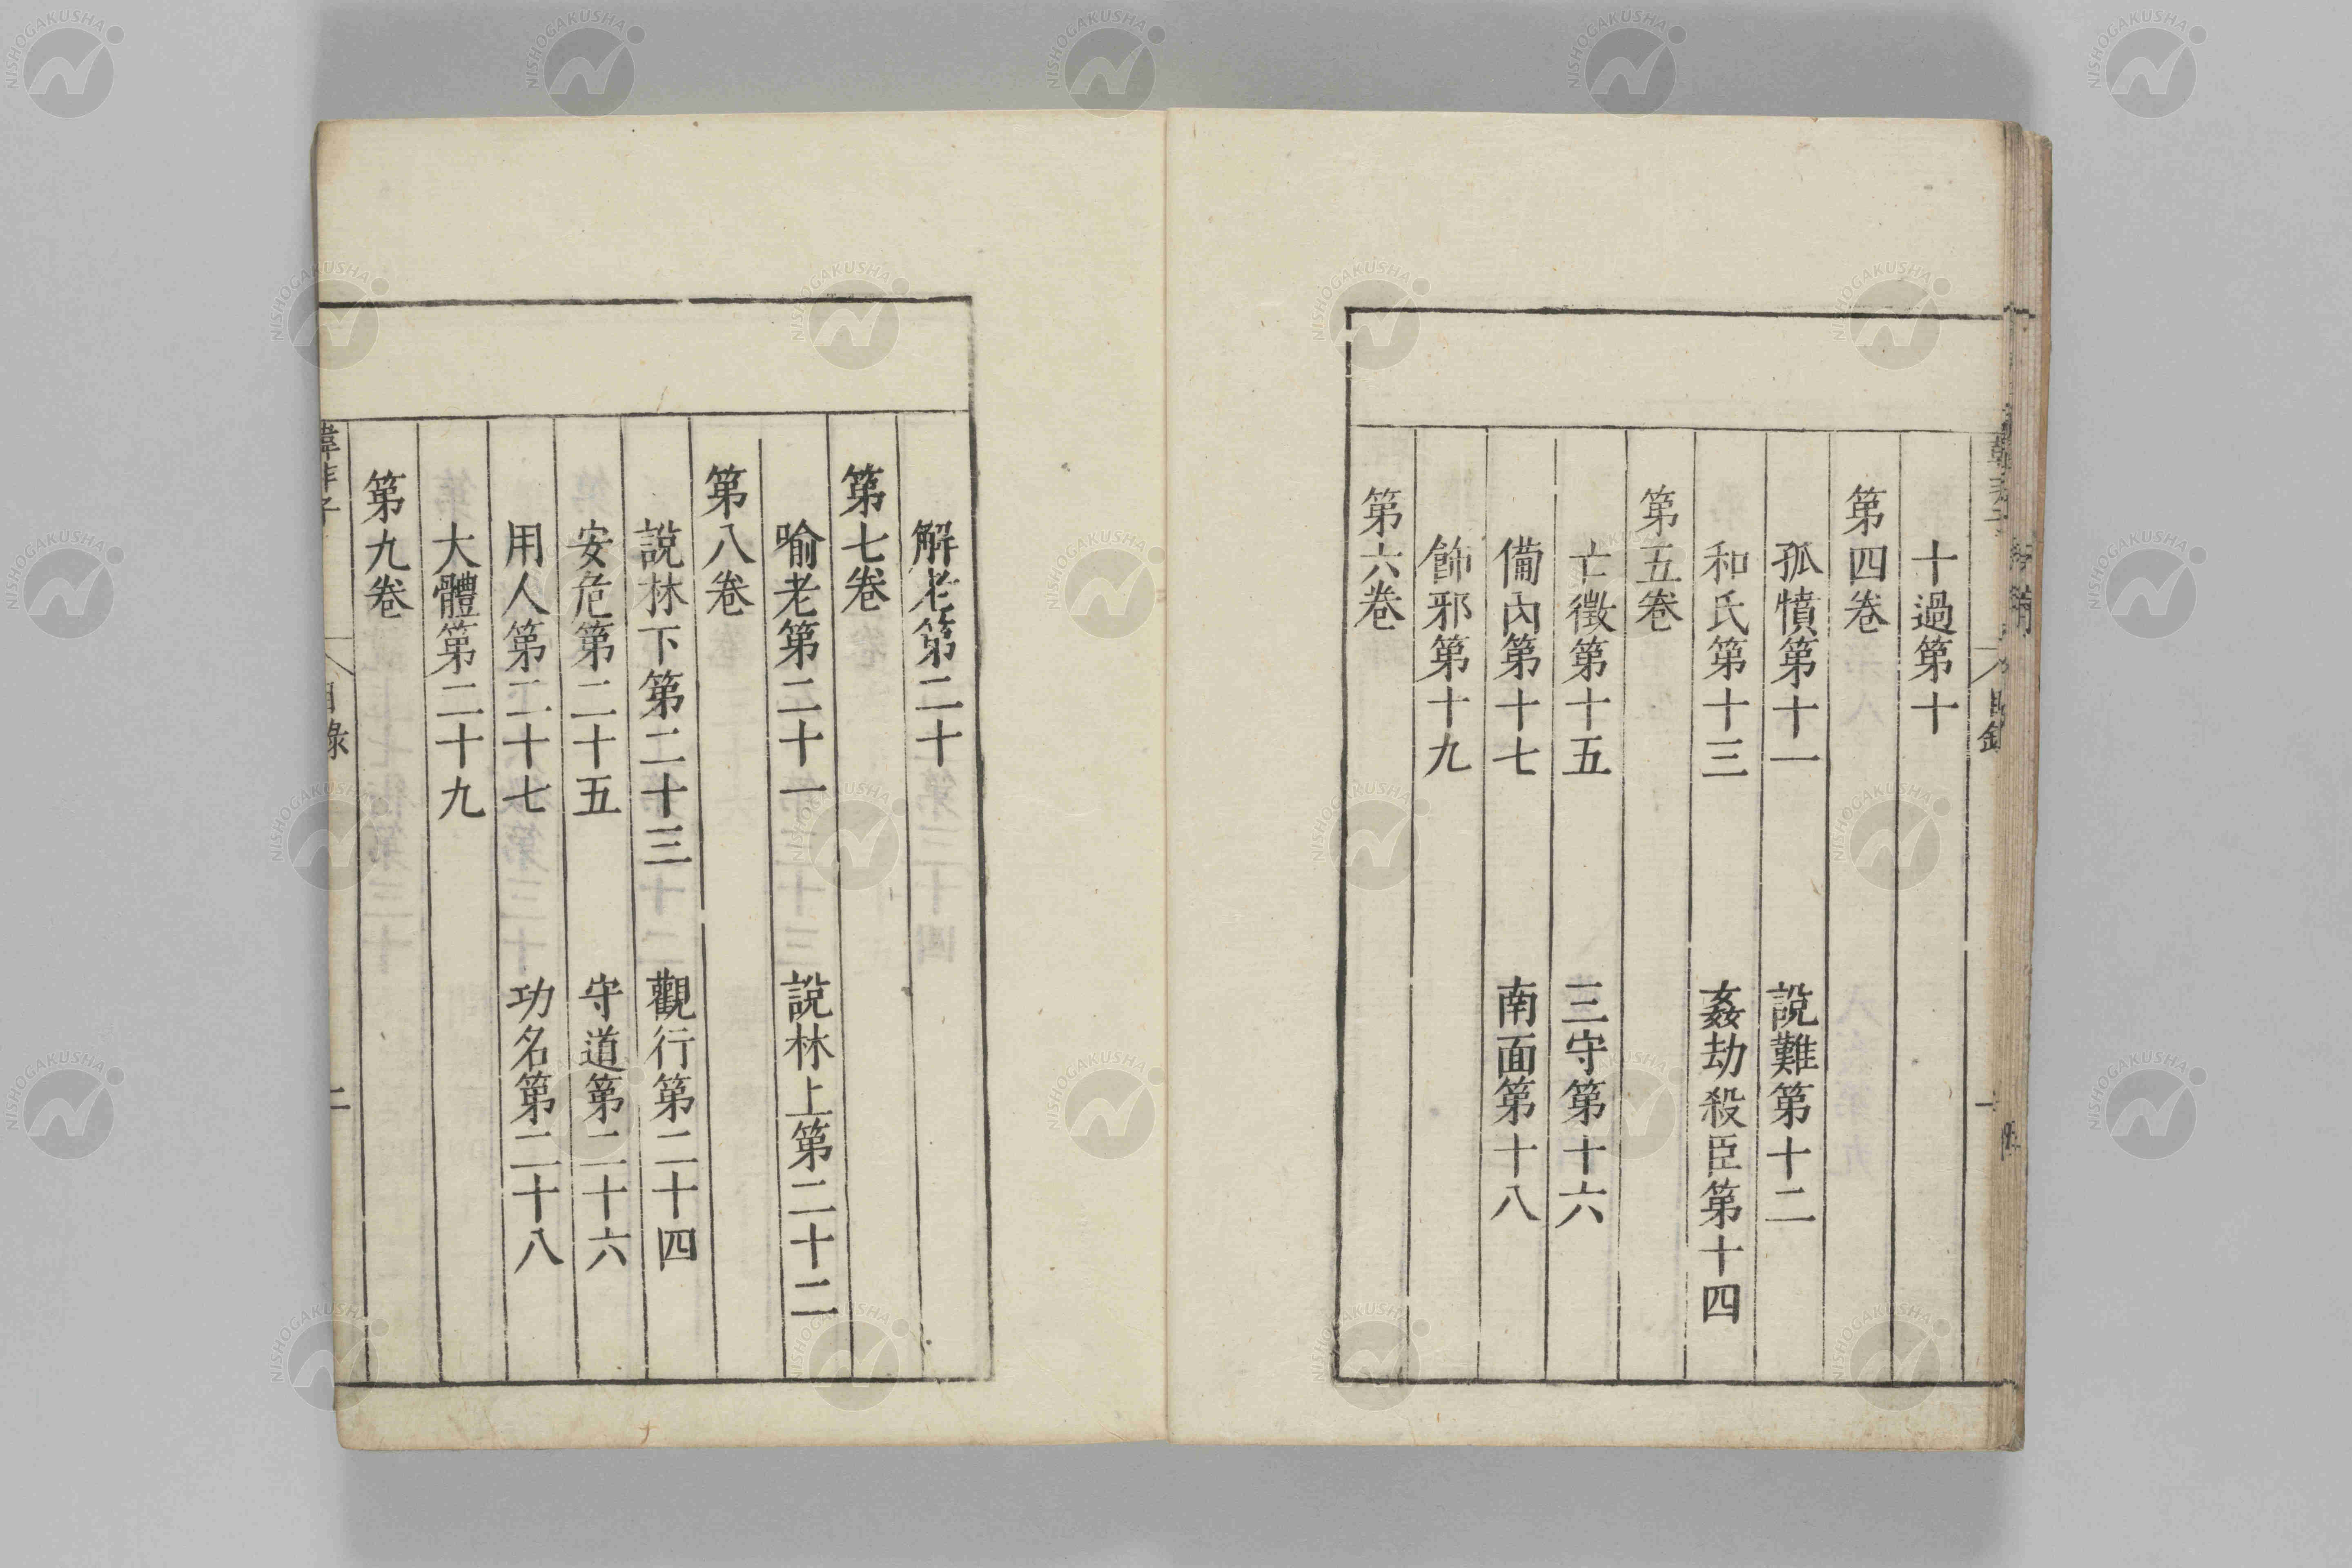 十過第十
第四卷
孤憤第十一　説難第十二
和氏第十三　姦劫殺臣第十四
第五卷
亡徵第十五　三守第十六
備內第十七　南面第十八
飾邪第十九
第六卷
解老第二十
第七卷
喻老第二十一　說林上第二十二
第八卷
說林下第二十三　觀行第二十四
安危第二十五　守道第二十六
用人第二十七　功名第二十八
大體第二十九
第九卷
韓非子　目錄　二
NISHOGAKUSHA